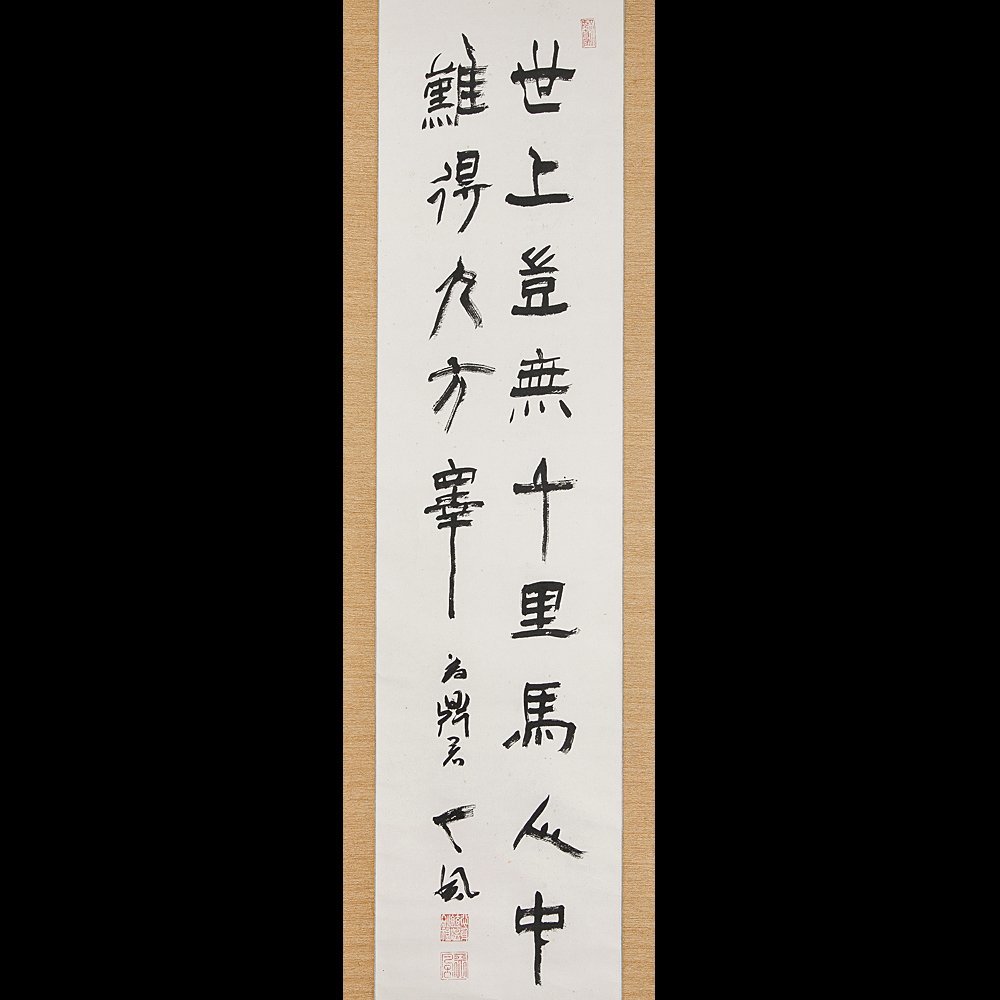 世上豈無千里馬人中
難得九方皋 為鼎君